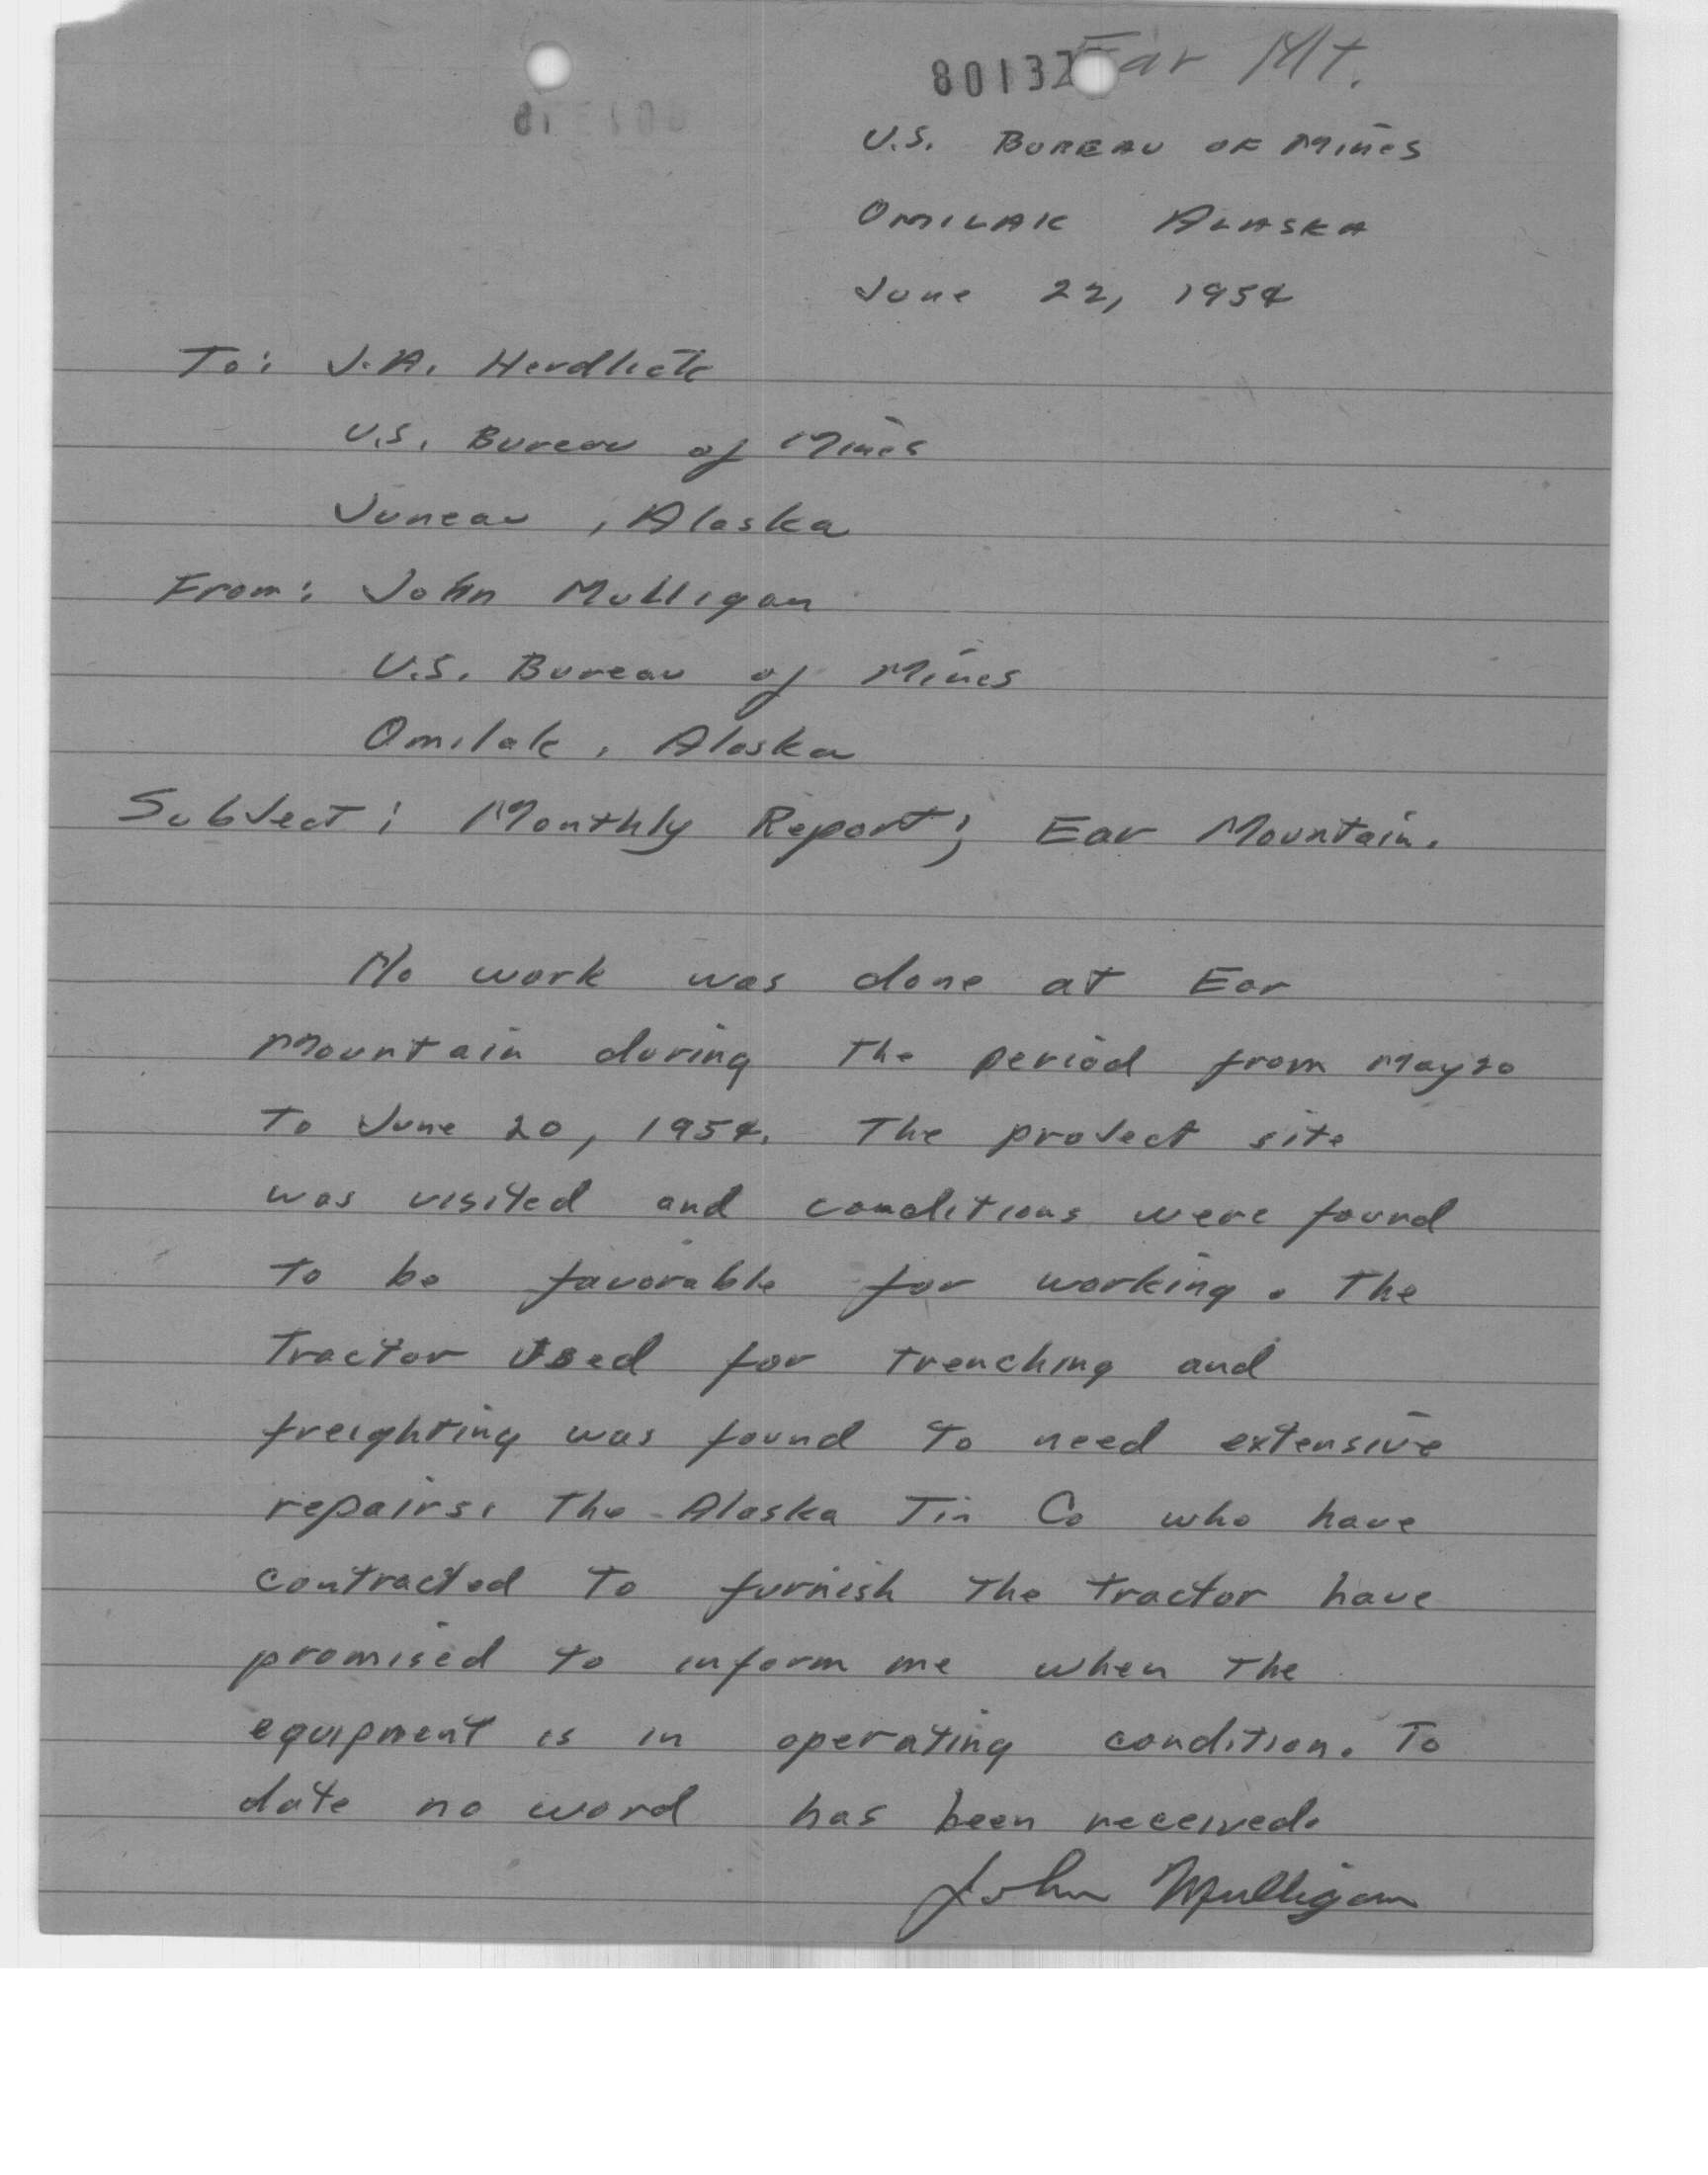 80132 Ear Mt.
U.S. BUREAU OF Mines
OMILAK ALASKA
June 22, 1954
To: J.A. Herdlick
U.S. Bureau of Mines
Juneau, Alaska
From: John Mulligan
U.S. Bureau of Mines
Omilak, Alaska
Subject: Monthly Report; Ear Mountain.
No work was done at Ear
Mountain during the period from May 20
to June 20, 1954. The project site
was visited and conditions were found
to be favorable for working. The
tractor used for trenching and
freighting was found to need extensive
repairs. The Alaska Tin Co who have
contracted to furnish the tractor have
promised to inform me when the
equipment is in operating condition. To
date no word has been received.
John Mulligan